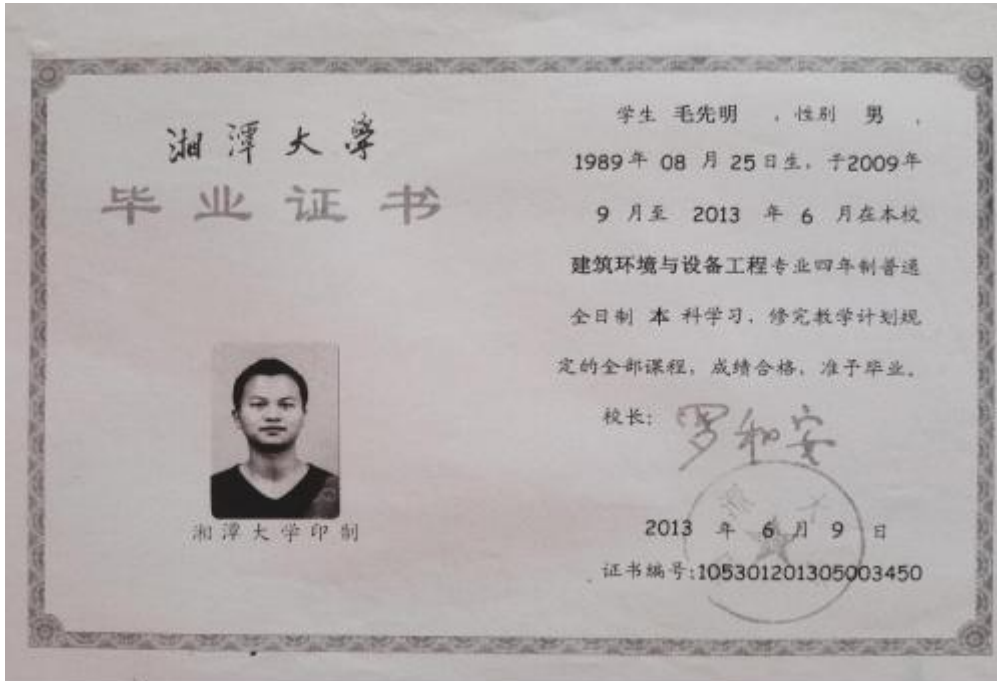 湘潭大学
毕业证书
湘潭大学印制
学生 毛先明 ，性别 男 ，
1989年 08 月 25日生，于2009年
9 月至 2013 年 6 月在本校
建筑环境与设备工程专业四年制普通
全日制 本 科学习，修完教学计划规
定的全部课程，成绩合格，准予毕业。
校长：罗和安
2013 年 6 月 9 日
证书编号:105301201305003450